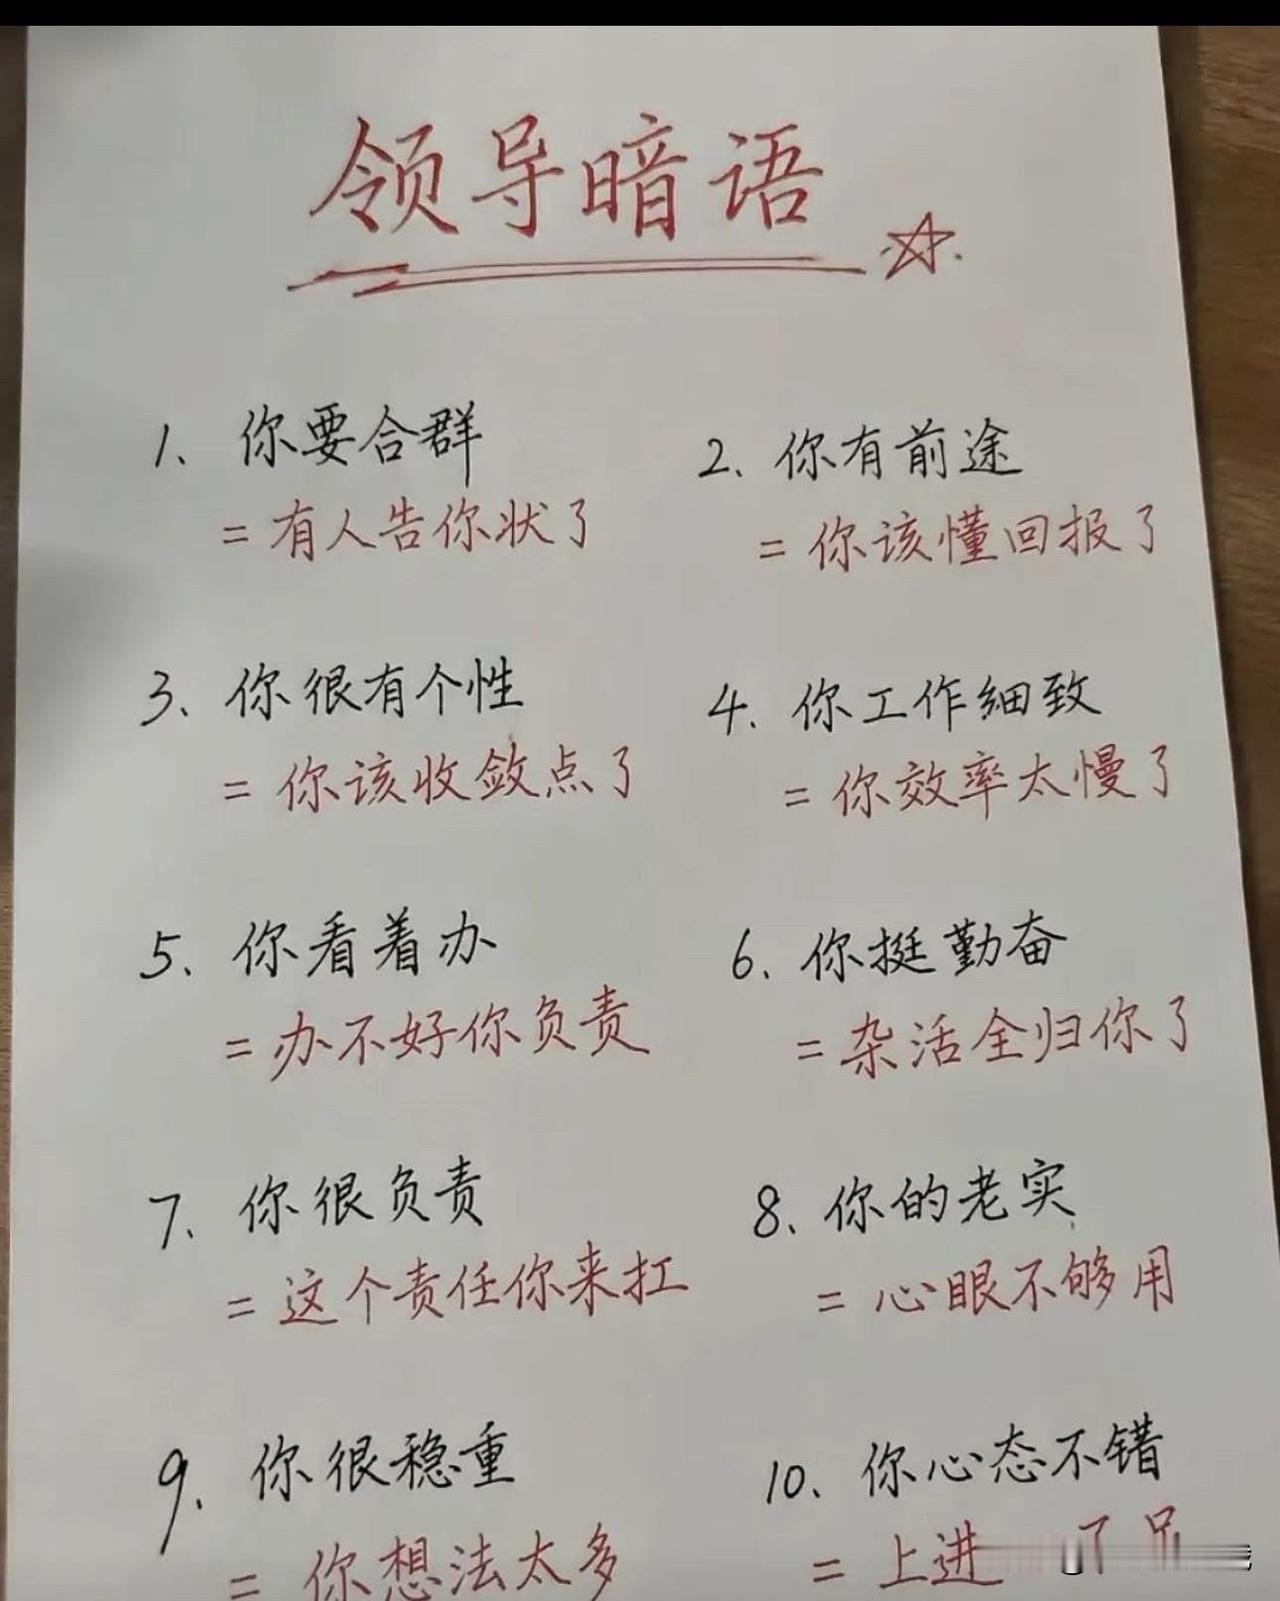 领导暗语
1、你要合群
=有人告你状了
2、你有前途
=你该懂回报了
3、你很有个性
=你该收敛点了
4、你工作细致
=你效率太慢了
5、你看着办
=办不好你负责
6、你挺勤奋
=杂活全归你了
7、你很负责
=这个责任你来扛
8、你的老实
=心眼不够用
9、你很稳重
=你想法太多
10、你心态不错
=上进